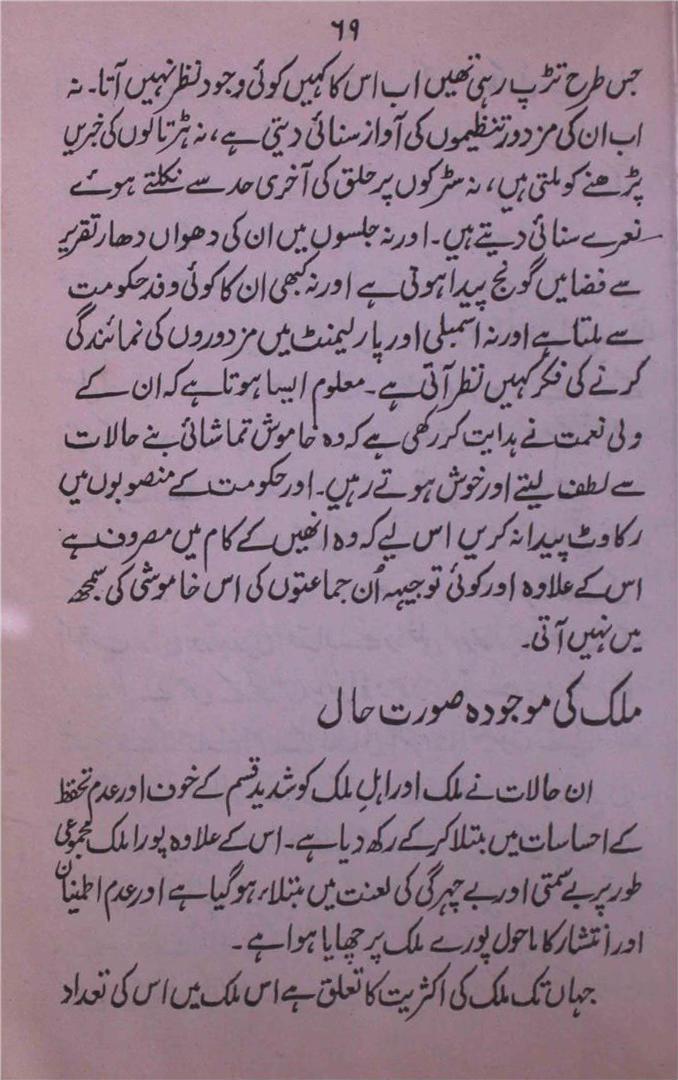 ۶۹
جس طرح تڑپ رہی تھیں اب اس کا کہیں کوئی وجود نظر نہیں آتا۔ نہ
اب ان کی مزدور تنظیموں کی آواز سنائی دیتی ہے، نہ ہڑتالوں کی خبریں
پڑھنے کو ملتی ہیں، نہ سڑکوں پر حلق کی آخری حد سے نکلتے ہوئے
نعرے سنائی دیتے ہیں۔ اور نہ جلسوں میں ان کی دھواں دھار تقریر
سے فضا میں گونج پیدا ہوتی ہے اور نہ کبھی ان کا کوئی وفد حکومت
سے ملتا ہے اور نہ اسمبلی اور پارلیمنٹ میں مزدوروں کی نمائندگی
کرنے کی فکر کہیں نظر آتی ہے۔ معلوم ایسا ہوتا ہے کہ ان کے
ولی نعمت نے ہدایت کر رکھی ہے کہ وہ خاموش تماشائی بنے حالات
سے لطف لیتے اور خوش ہوتے رہیں۔ اور حکومت کے منصوبوں میں
رکاوٹ پیدا نہ کریں اس لیے کہ وہ انھیں کے کام میں مصروف ہے
اس کے علاوہ اور کوئی توجیہہ اُن جماعتوں کی اس خاموشی کی سمجھ
میں نہیں آتی۔
ملک کی موجودہ صورت حال
ان حالات نے ملک اور اہلِ ملک کو شدید قسم کے خوف اور عدم تحفظ
کے احساسات میں مبتلا کر کے رکھ دیا ہے۔ اس کے علاوہ پورا ملک مجموعی
طور پر بے سمتی اور بے چہرگی کی لعنت میں مبتلاء ہو گیا ہے اور عدم اطمینان
اور انتشار کا ماحول پورے ملک پر چھایا ہوا ہے۔
جہاں تک ملک کی اکثریت کا تعلق ہے اس ملک میں اس کی تعداد